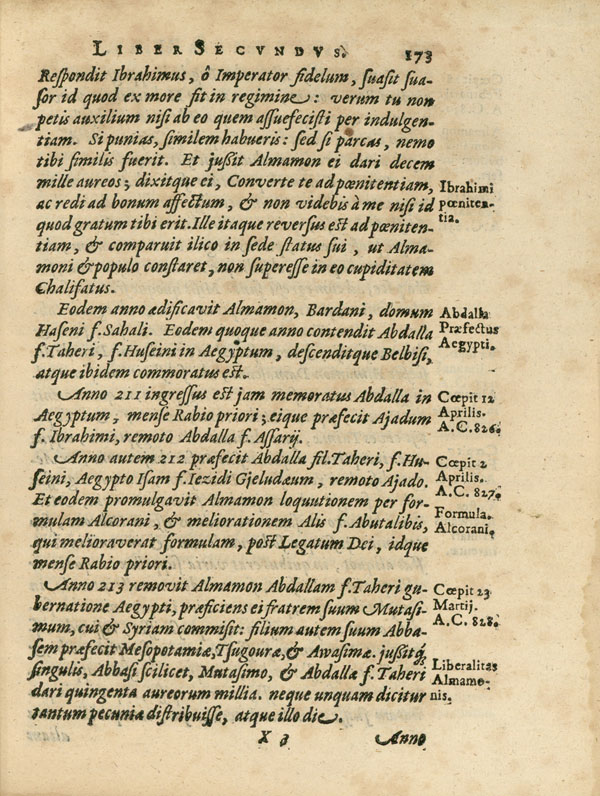 LIBER SECVNDVS. 173
Respondit Ibrahimus, ô Imperator fidelum, suasit sua-
sor id quod ex more fit in regimine: verum tu non
petis auxilium nisi ab eo quem assuefecisti per indulgen-
tiam. Si punias, similem habueris: sed si parcas, nemo
tibi similis fuerit. Et jußit Almamon ei dari decem
mille aureos; dixitque ei, Converte te ad pœnitentiam,
ac redi ad bonum affectum, & non videbis à me nisi id
quod gratum tibi erit. Ille itaque reversus est ad pœniten-
tiam, & comparuit ilico in sede status sui, ut Alma-
moni & populo constaret, non superesse in eo cupiditatem
Chalifatus.
Ibrahimi
pœniten-
tia.
Eodem anno ædificavit Almamon, Bardani, domum
Haseni f. Sahali. Eodem quoque anno contendit Abdalla
f. Taheri, f. Huseini in Aegyptum, descenditque Belbisi,
atque ibidem commoratus est.
Abdalla
Præfectus
Aegypti.
Anno 211 ingressus est jam memoratus Abdalla in
Aegyptum, mense Rabio priori; eique præfecit Ajadum
f. Ibrahimi, remoto Abdalla f. Assarij.
Cœpit 12
Aprilis.
A.C. 826.
Anno autem 212 præfecit Abdalla fil. Taheri, f. Hu-
seini, Aegypto Isam f. Iezidi Gjeludæum, remoto Ajado.
Et eodem promulgavit Almamon loquutionem per for-
mulam Alcorani, & meliorationem Alis f. Abutalibis,
qui melioraverat formulam, post Legatum Dei, idque
mense Rabio priori.
Cœpit 2
Aprilis.
A.C. 827.
Formula.
Alcorani.
Anno 213 removit Almamon Abdallam f. Taheri gu-
bernatione Aegypti, præficiens ei fratrem suum Mutasi-
mum, cui & Syriam commisit: filium autem suum Abba-
sem præfecit Mesopotamiæ, Tsugouræ, & Awasimæ. jußitq́;
singulis, Abbasi scilicet, Mutasimo, & Abdallæ f. Taheri
dari quingenta aureorum millia. neque unquam dicitur
tantum pecuniæ distribuisse, atque illo die.
Cœpit 23
Martij.
A.C. 828.
Liberalitas
Almamo-
nis.
X 3 Anno